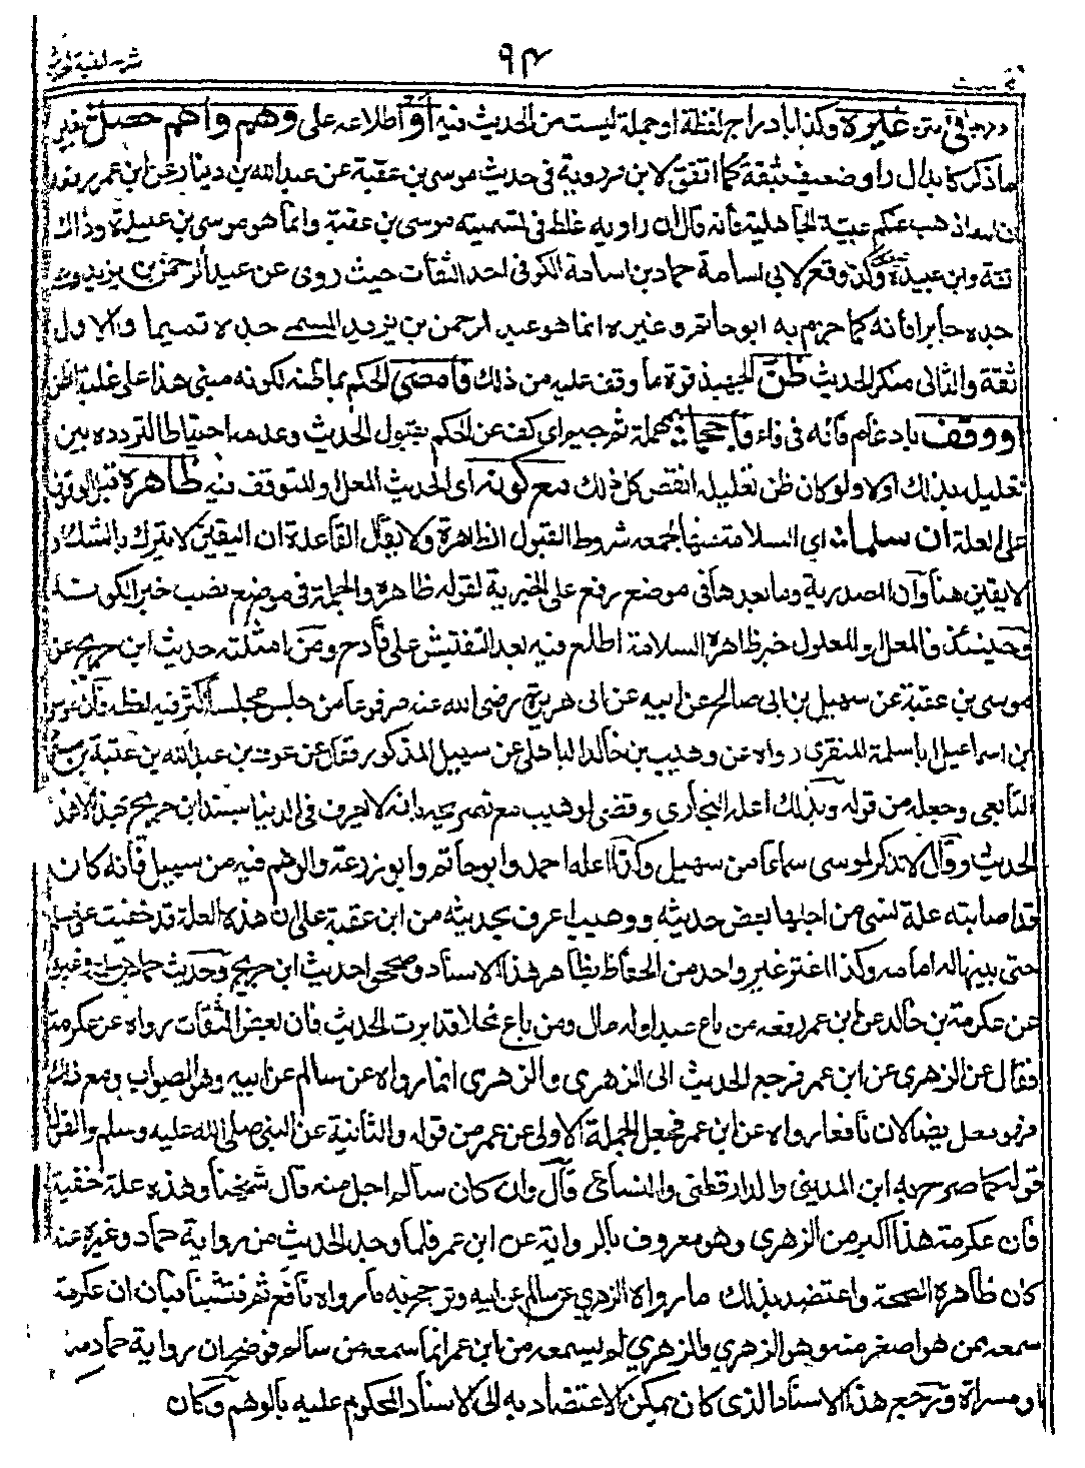 شرح الفية الحديث
٩٣
متن غيره وكذا بادراج لفظة او جملة ليست من الحديث فيه او اطلاعه على وهم واهم حصل بغير
ما ذكر كابدال راو ضعيف بثقة كما اتفق لابن مردوية في حديث موسى بن عقبة عن عبد الله بن دينار عن ابن عمر رفعه
ان الله اذهب عنكم عبية الجاهلية فانه قال ان راويه غلط في تسميته موسى بن عقبة وانما هو موسى بن عبيدة وذاك
ثقة وابن عبيدة ضعيف وكذا وقع لابي اسامة حماد بن اسامة الكوفي احد الثقات حيث روى عن عبد الرحمن بن يزيد
جده جابرا فانه كما جزم به ابو حاتم وغيره انما هو عبد الرحمن بن يزيد المسمى جده تميما والاول
ثقة والثاني منكر الحديث ظن الجهبذ قوة ما وقف عليه من ذلك فامضى الحكم بما ظنه لكونه مبنى هذا على غلبة الظن
او وقف بادغام فائه في فاء فاحجما بمهملة ثم جيم اي كف عن الحكم بقبول الحديث وعدمه احتياطا لتردده بين
تعليله بذلك او لا ولو كان ظن تعليله انقص كل ذلك مع كونه اي الحديث المعل او المتوقف فيه ظاهره قبل الوقوف
على العلة ان سلما اي السلامة منها لجمعه شروط القبول الظاهرة ولا يقال القاعدة ان اليقين لا يترك بالشك اذ
لا يقين هنا وان المصدرية وما بعدها في موضع رفع على الخبرية لقوله ظاهره والجملة في موضع نصب خبر الكون
وحينئذ فالمعل او المعلول خبر ظاهره السلامة اطلع فيه بعد التفتيش على قادح ومن امثلته حديث ابن جريج عن
موسى بن عقبة عن سهيل بن ابي صالح عن ابيه عن ابي هريرة رضي الله عنه مرفوعا من جلس مجلسا كثر فيه لغطه فان موسى
بن اسماعيل ابا سلمة المنقري رواه عن وهيب بن خالد الباهلي عن سهيل المذكور فقال عن عون بن عبد الله بن عتبة بن
التابعي وجعله من قوله وبذلك اعله البخاري وقضى لوهيب مع تصريحه بانه لا يعرف في الدنيا بسند ابن جريج بهذا الا هذا
الحديث وقال لا نذكر لموسى سماعا من سهيل وكذا اعله احمد وابو حاتم وابو زرعة والوهم فيه من سهيل فانه كان
قد اصابته علة نسي من اجلها بعض حديثه ووهيب اعرف بحديثه من ابن عقبة على ان هذه العلة قد خفيت على مسلم
حتى بينها له امامه وكذا اغتر غير واحد من الحفاظ بظاهر هذا الاسناد وصححوا حديث ابن جريج وحديث حماد بن سلمة وغيره
عن عكرمة بن خالد عن ابن عمر رفعه من باع عبدا وله مال ومن باع نخلا قد ابرت الحديث فان بعض الثقات رواه عن عكرمة
فقال عن الزهري عن ابن عمر فرجع الحديث الى الزهري والزهري انما رواه عن سالم عن ابيه وهو الصواب ومع ذلك
فهو معل ايضا لان نافعا رواه عن ابن عمر فجعل الجملة الاولى عن عمر من قوله والثانية عن النبي صلى الله عليه وسلم والقول
قوله كما صرح به ابن المديني والدارقطني والنسائي قال وان كان سالم اجل منه قال شيخنا وهذه علة خفية
فان عكرمة هذا اكبر من الزهري وهو معروف بالرواية عن ابن عمر فلما وجد الحديث من رواية حماد وغيره عنه
كان ظاهره الصحة واعتضد بذلك ما رواه الزهري عن سالم عن ابيه وترجح به ما رواه نافع ثم فتشنا فبان ان عكرمة
سمعه ممن هو اصغر منه وهو الزهري والزهري لم يسمعه من ابن عمر انما سمعه من سالم فوضح ان رواية حماد مدلسة
او مسواة ورجع هذا الاسناد الذي كان يمكن الاعتضاد به الى الاسناد المحكوم عليه بالوهم وكان